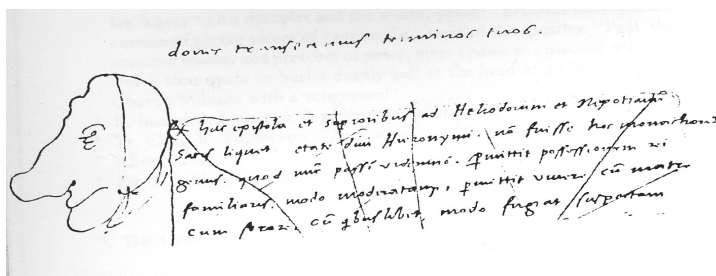 donec transeamus terminos tuos.
hac epistola et superioribus ad Heliodorum et Nepotianū
Satis liquet etate diui Hieronymi, nō fuisse hoc monachorū
genus. quod nūc passī videmus. permittit possessionem rei
familiaris, modo moderatam, permittit viuere cū matre
cum sorore, cū quibuslibet modo fugiat suspectam